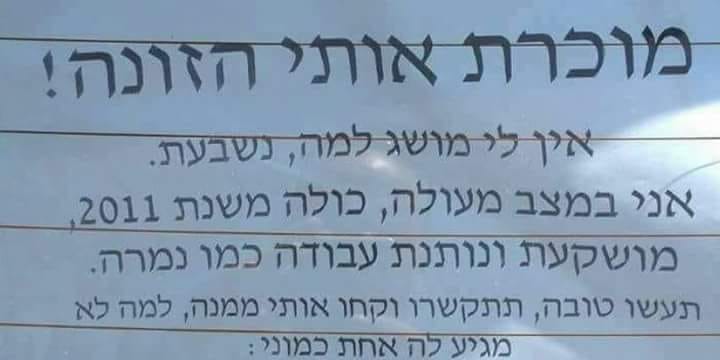 מוכרת אותי הזונה!
אין לי מושג למה, נשבעת.
אני במצב מעולה, כולה משנת 2011,
מושקעת ונותנת עבודה כמו נמרה.
תעשו טובה, תתקשרו וקחו אותי ממנה, למה לא
מגיע לה אחת כמוני: